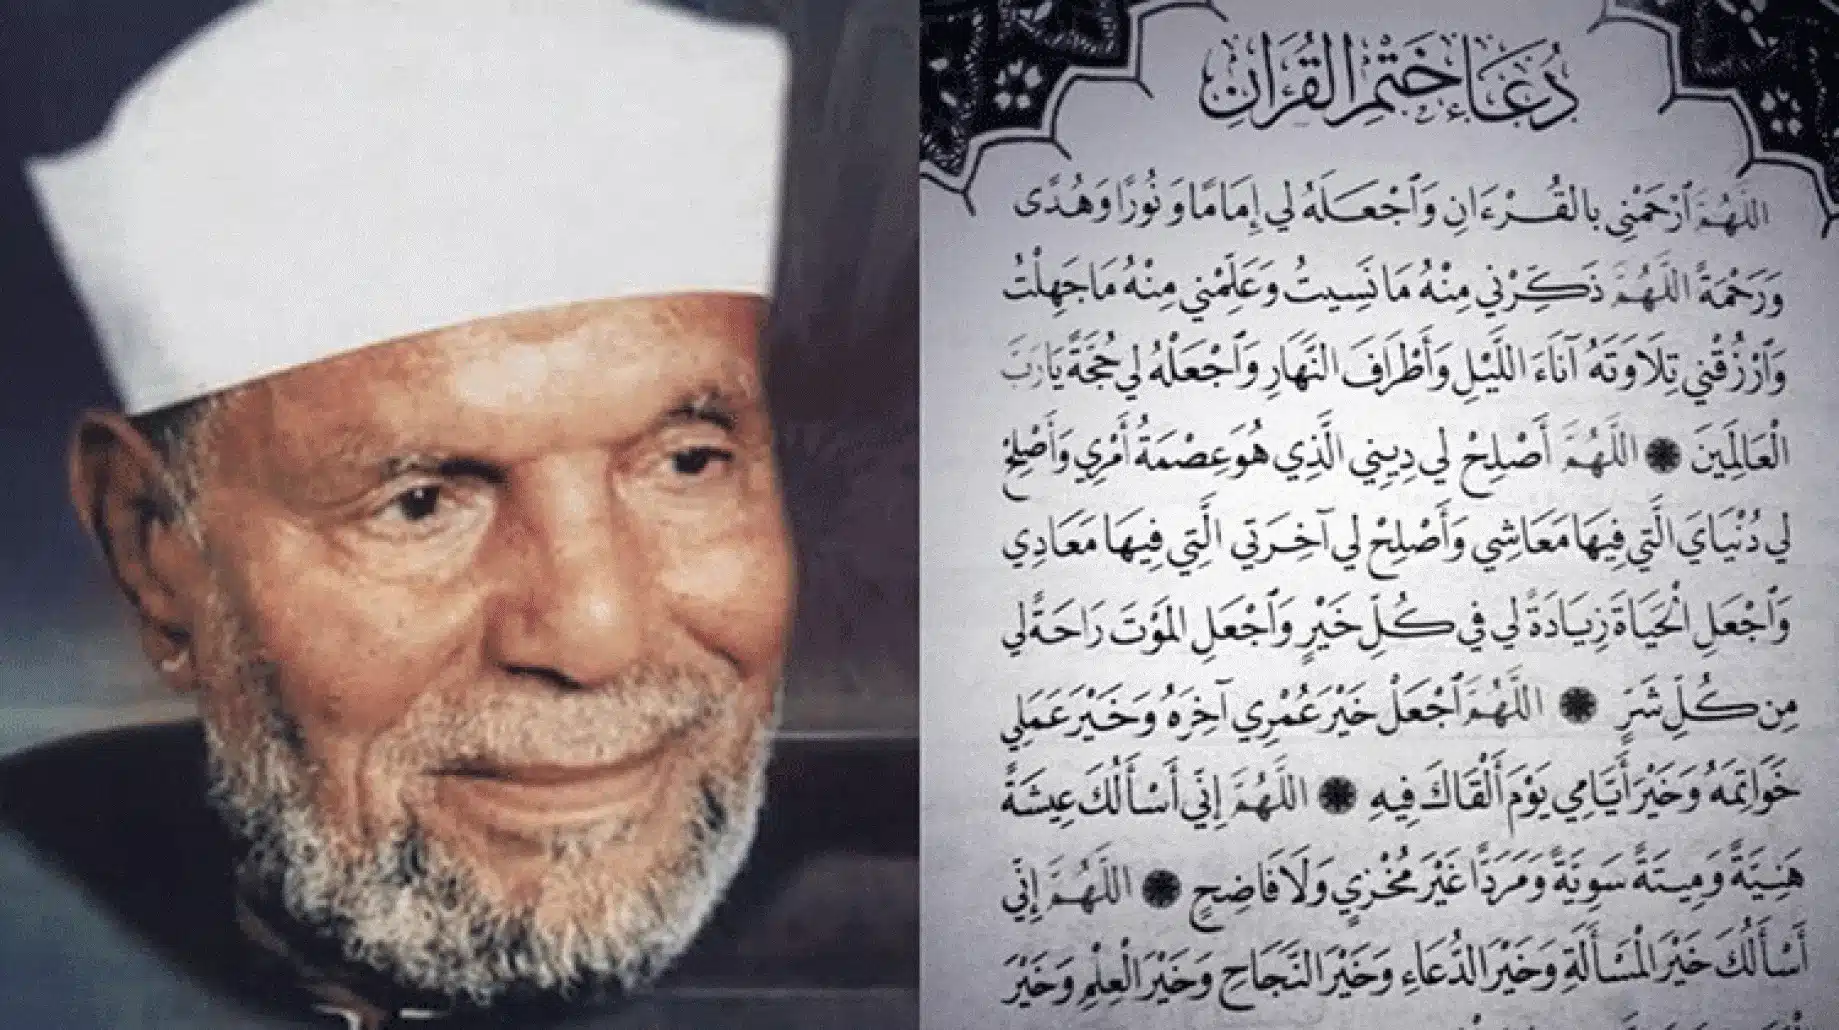 دُعَاءُ خَتْمِ الْقُرْآنِ
اللَّهُمَّ ٱرْحَمْنِي بِالْقُرْءَانِ وَٱجْعَلْهُ لِي إِمَامًا وَنُورًا وَهُدًى
وَرَحْمَةً اللَّهُمَّ ذَكِّرْنِي مِنْهُ مَا نَسِيتُ وَعَلِّمْنِي مِنْهُ مَا جَهِلْتُ
وَٱرْزُقْنِي تِلَاوَتَهُ آنَاءَ اللَّيْلِ وَأَطْرَافَ النَّهَارِ وَٱجْعَلْهُ لِي حُجَّةً يَا رَبَّ
الْعَالَمِينَ ۞ اللَّهُمَّ أَصْلِحْ لِي دِينِي الَّذِي هُوَ عِصْمَةُ أَمْرِي وَأَصْلِحْ
لِي دُنْيَايَ الَّتِي فِيهَا مَعَاشِي وَأَصْلِحْ لِي آخِرَتِي الَّتِي فِيهَا مَعَادِي
وَٱجْعَلِ الْحَيَاةَ زِيَادَةً لِي فِي كُلِّ خَيْرٍ وَٱجْعَلِ الْمَوْتَ رَاحَةً لِي
مِن كُلِّ شَرٍّ ۞ اللَّهُمَّ ٱجْعَلْ خَيْرَ عُمْرِي آخِرَهُ وَخَيْرَ عَمَلِي
خَوَاتِمَهُ وَخَيْرَ أَيَّامِي يَوْمَ أَلْقَاكَ فِيهِ ۞ اللَّهُمَّ إِنِّي أَسْأَلُكَ عِيشَةً
هَنِيَّةً وَمِيتَةً سَوِيَّةً وَمَرَدًّا غَيْرَ مُخْزِي وَلَا فَاضِحٍ ۞ اللَّهُمَّ إِنِّي
أَسْأَلُكَ خَيْرَ الْمَسْأَلَةِ وَخَيْرَ الدُّعَاءِ وَخَيْرَ النَّجَاحِ وَخَيْرَ الْعِلْمِ وَخَيْرَ